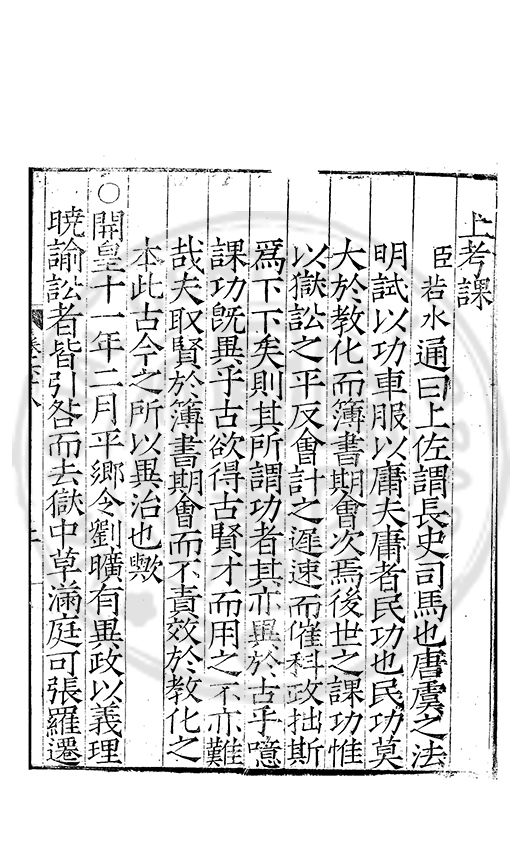 上考課
臣若水通曰上佐謂長史司馬也唐虞之法
明試以功車服以庸夫庸者民功也民功莫
大於教化而簿書期會次焉後世之課功惟
以獄訟之平反會計之遲速而催科政拙斯
爲下下矣則其所謂功者其亦異於古乎噫
課功旣異乎古欲得古賢才而用之不亦難
哉夫取賢於簿書期會而不責效於教化之
本此古今之所以異治也歟
○開皇十一年二月平鄉令劉曠有異政以義理
曉諭訟者皆引咎而去獄中草滿庭可張羅遷